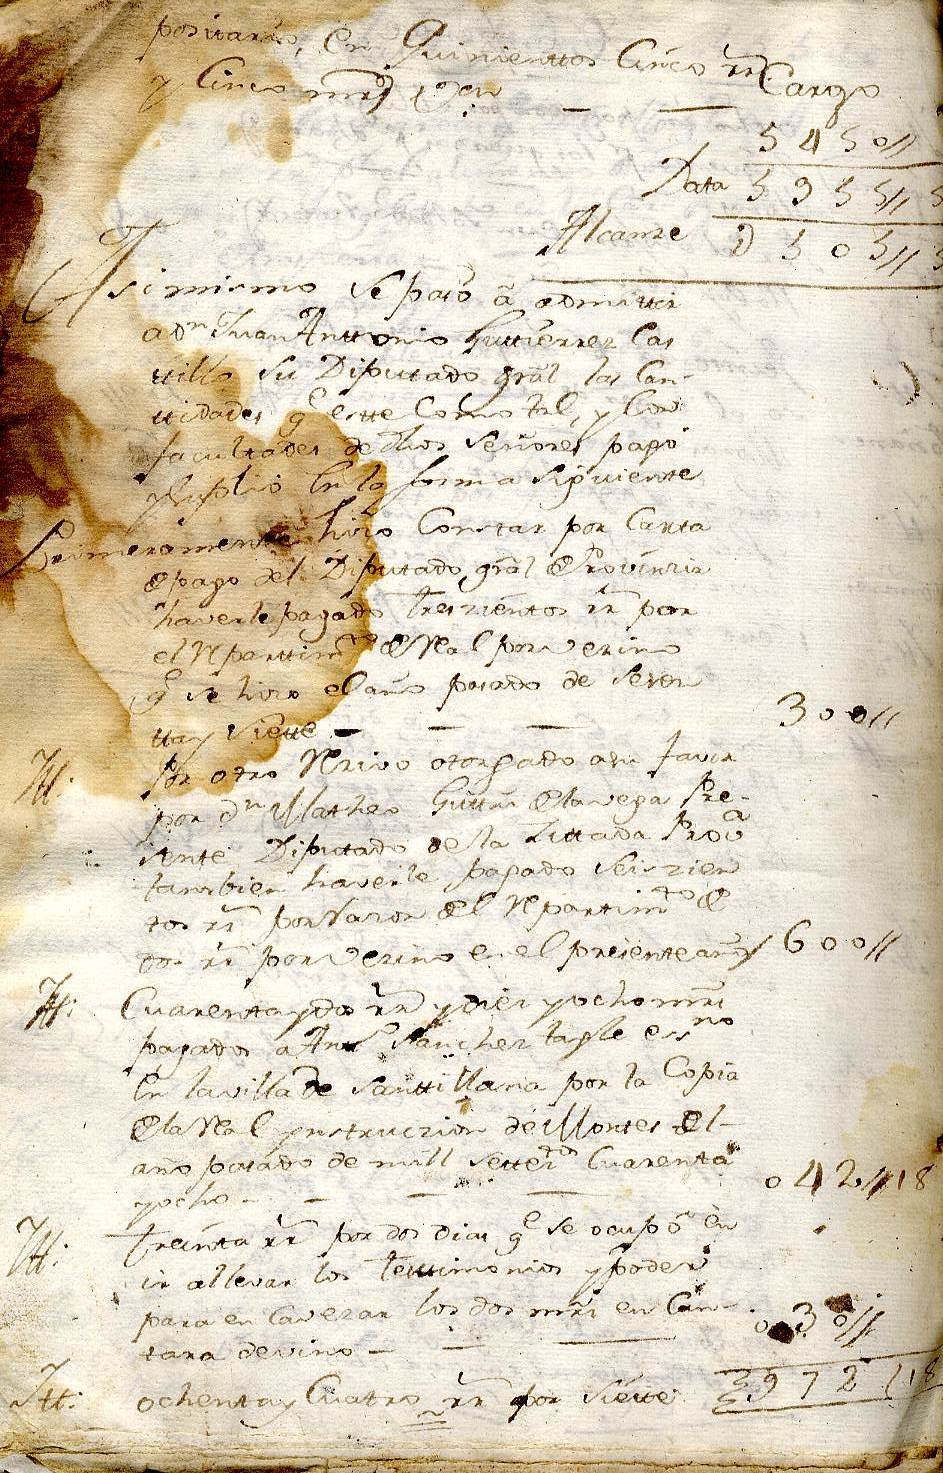 positarios, en Quinienttos Cinco rrs
y Cinco mrs von — — Cargo
5450//
Data 5955//5
Alcanze 0505//5
Asimismo se pasó â admittir
a Dn Juan Anttonio Guttierrez Cas
ttillo su Diputado gral las Can-
ttidades q este Como tal, y Con
facultades de dhos Señores pagó
y suplió en la forma siguiente
Primeramente hizo Constar por Carta
de pago del Diputado gral de Provinzia
haverle pagado trezientos rrs por
el Reparttimto de Real por vezino
q se hizo el año pasado de seten
tta y siette — — — 300//
Itt: Por otro Rezivo otorgado a su favor
por dn Matheo Guttrrz de la vega Pre-
sente Diputado de la zittada Proa
tambien haverle pagado seiszien
tos rrs por razon del Repartimto de
dos rrs por vezino en el presente año 600//
Itt: Cuarenta y dos rrs y diez y ocho mrs
pagados a Anto Sanchez tagle essno
en la villa de Santtillana por la Copia
de la Real ynstruczion de Montes del
año pasado de mill settezos Cuarenta
y ocho — — — 042//18
Itt: treinta rrs por dos dias q se ocupó en
ir a llevar los testimonios y poder
para en Cavezar los dos mrs en Can-
tara de vino — — — 030//
Itt: ochenta y Cuatro rrs por siette 972//18